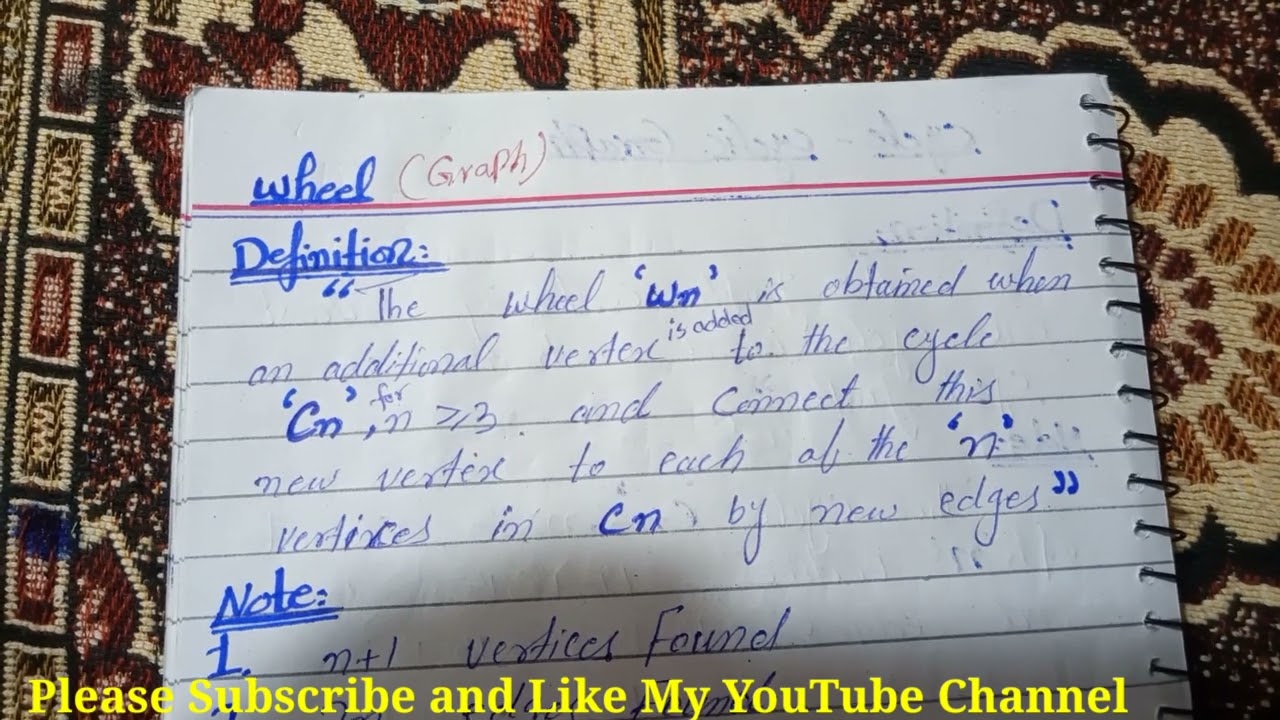 wheel (Graph)
Definition:
“The wheel ‘Wn’ is obtained when
an additional vertex is added to the cycle
‘Cn’, for n ≥ 3. and connect this
new vertex to each of the ‘n’
vertices in Cn by new edges”
Note:
1. n+1 vertices Found
Please Subscribe and Like My YouTube Channel